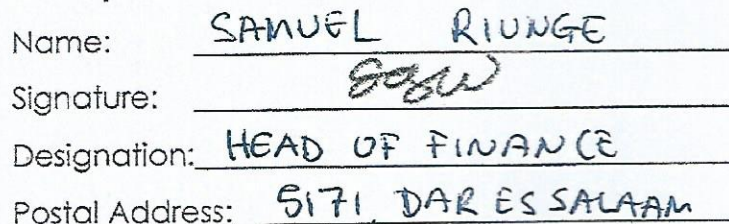 Name: SAMUEL RIUNGE
Signature:
Designation: HEAD OF FINANCE
Postal Address: 5171 DAR ES SALAAM